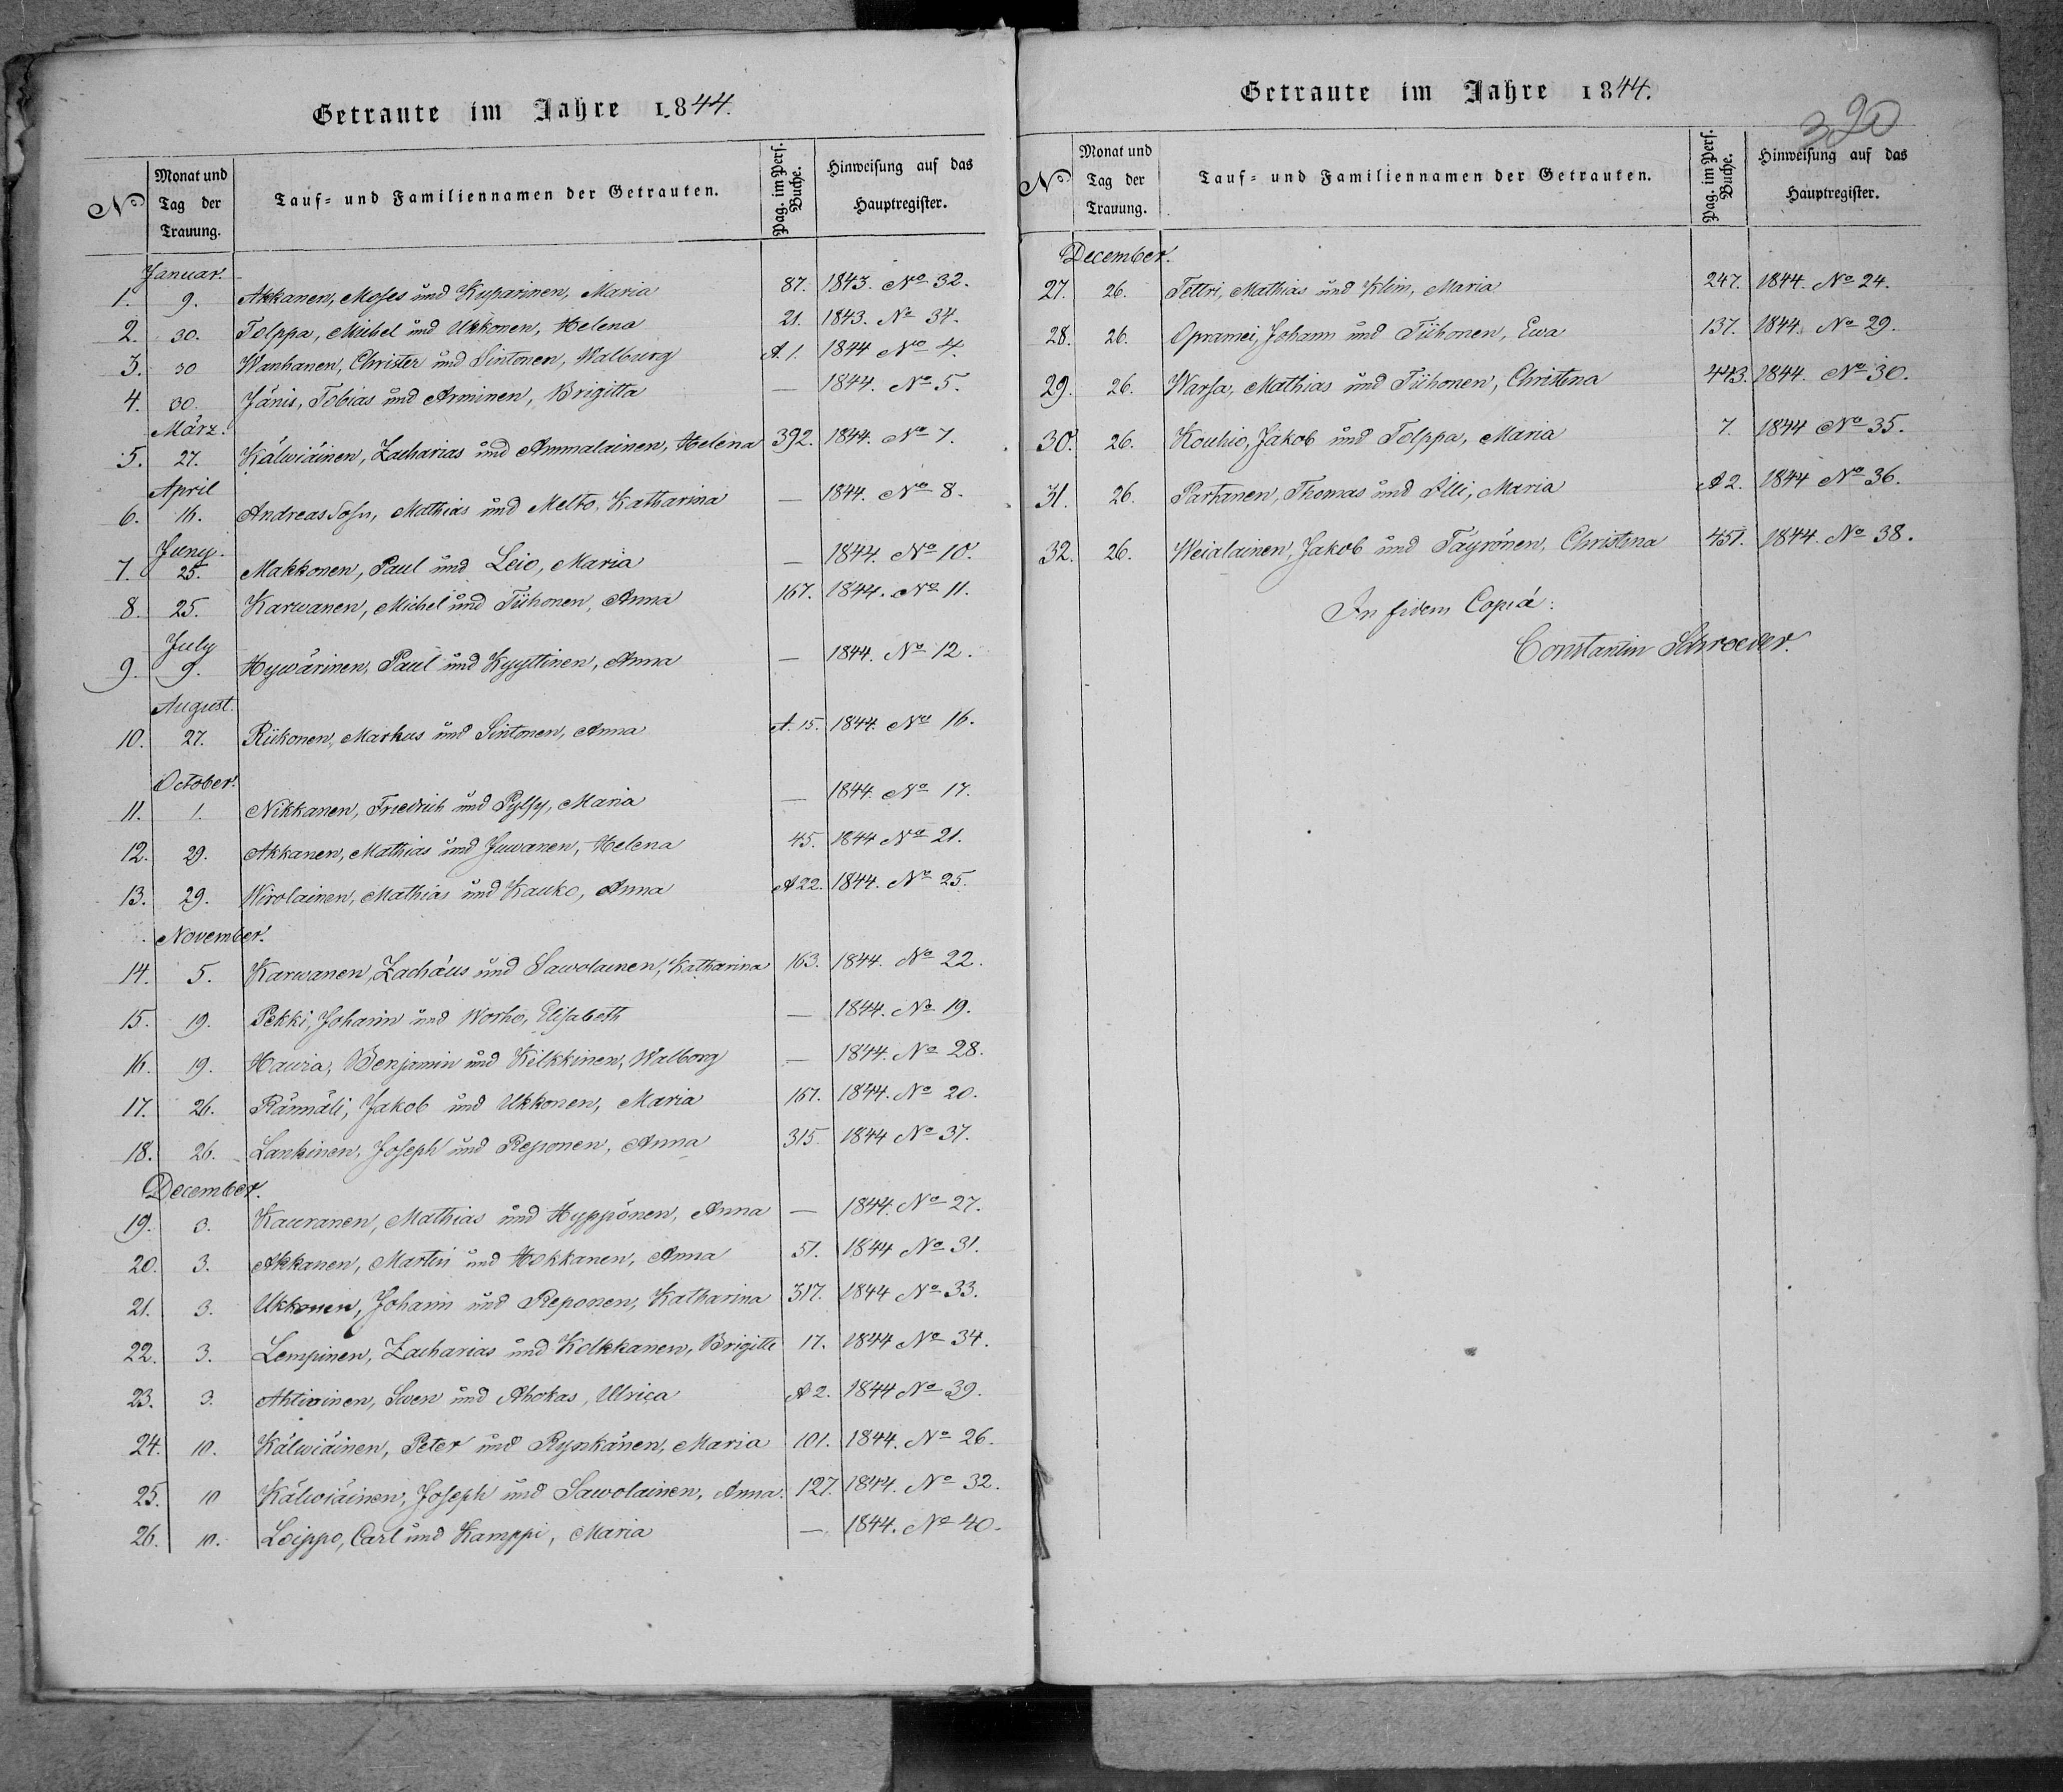 Getraute im Jahre 1844.
No Monat und Tag der Trauung. Tauf- und Familiennamen der Getrauten. Pag. im Pers. Buche. Hinweisung auf das Hauptregister.
Januar.
1. 9. Akkanen, Moses und Kyparinen, Maria 87. 1843. No 32.
2. 30. Tolppa, Michel und Ukkonen, Helena 21. 1843. No 34.
3. 30 Wanhanen, Christer und Sintonen, Walburg A. 1. 1844 No 4.
4. 30. Jänis, Tobias und Arminen, Brigitta — 1844. No 5.
März.
5. 27. Kälwiäinen, Zacharias und Ammalainen, Helena 392. 1844. No 7.
April
6. 16. Andreas Sohn, Mathias und Melto, Katharina — 1844. No 8.
Juny.
7. 25. Makkonen, Paul und Leio, Maria — 1844. No 10.
8. 25. Karwanen, Michel und Tiihonen, Anna 167. 1844. No 11.
July
9. 9. Hywärinen, Paul und Kyyttinen, Anna — 1844. No 12.
August.
10. 27. Riikonen, Markus und Sintonen, Anna A. 15. 1844. No 16.
October.
11. 1. Nikkanen, Friedrich und Pylsy, Maria — 1844. No 17.
12. 29. Akkanen, Mathias und Juwanen, Helena 45. 1844 No 21.
13. 29. Wirolainen, Mathias und Kauko, Anna A 22. 1844. No 25.
November.
14. 5. Karwanen, Zachäus und Sawolainen, Katharina 163. 1844. No 22.
15. 19. Pekki, Johann und Worho, Elisabeth — 1844. No 19.
16. 19. Hawia, Benjamin und Kilkkinen, Walborg — 1844. No 28.
17. 26. Rämäli, Jakob und Ukkonen, Maria 167. 1844. No 20.
18. 26. Lankinen, Joseph und Reponen, Anna 315. 1844 No 37.
December.
19. 3. Kauranen, Mathias und Hyppönen, Anna — 1844. No 27.
20. 3. Akkanen, Martin und Hokkanen, Anna 51. 1844 No 31.
21. 3. Ukkonen, Johann und Reponen, Katharina 317. 1844 No 33.
22. 3. Lempinen, Zacharias und Kolkkanen, Brigitte 17. 1844 No 34.
23. 3. Ahtiainen, Swen und Ahokas, Ulrica A 2. 1844 No 39.
24. 10. Kälwiäinen, Peter und Rynkänen, Maria 101. 1844. No 26.
25. 10 Kälwiäinen, Joseph und Sawolainen, Anna. 127. 1844. No 32.
26. 10. Loippo, Carl und Kamppi, Maria — 1844. No 40.
Getraute im Jahre 1844.
320
No Monat und Tag der Trauung. Tauf- und Familiennamen der Getrauten. Pag. im Pers. Buche. Hinweisung auf das Hauptregister.
December.
27. 26. Tettri, Mathias und Klim, Maria 247. 1844. No 24.
28. 26. Opramei, Johann und Tiihonen, Ewa 137. 1844. No 29.
29. 26. Warsa, Mathias und Tiihonen, Christina 443. 1844. No 30.
30. 26. Kouhio, Jakob und Tolppa, Maria 7. 1844 No 35.
31. 26. Partanen, Thomas und Illi, Maria A 2. 1844 No 36.
32. 26. Weialainen, Jakob und Täyrönen, Christina 451. 1844. No 38.
In fidem Copiá:
Constantin Schroeder.